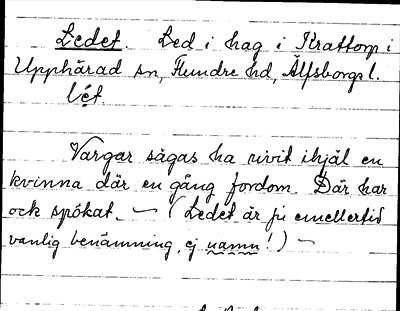 Ledet. Led i hag i Krattorp i
Upphärad sn, Flundre hd, Älfsborgs l.
Vargar sägas ha rivit ihjäl en
kvinna där en gång fordom. Där har
ock spökat. — (Ledet är ju emellertid
vanlig benämning, ej namn!) —